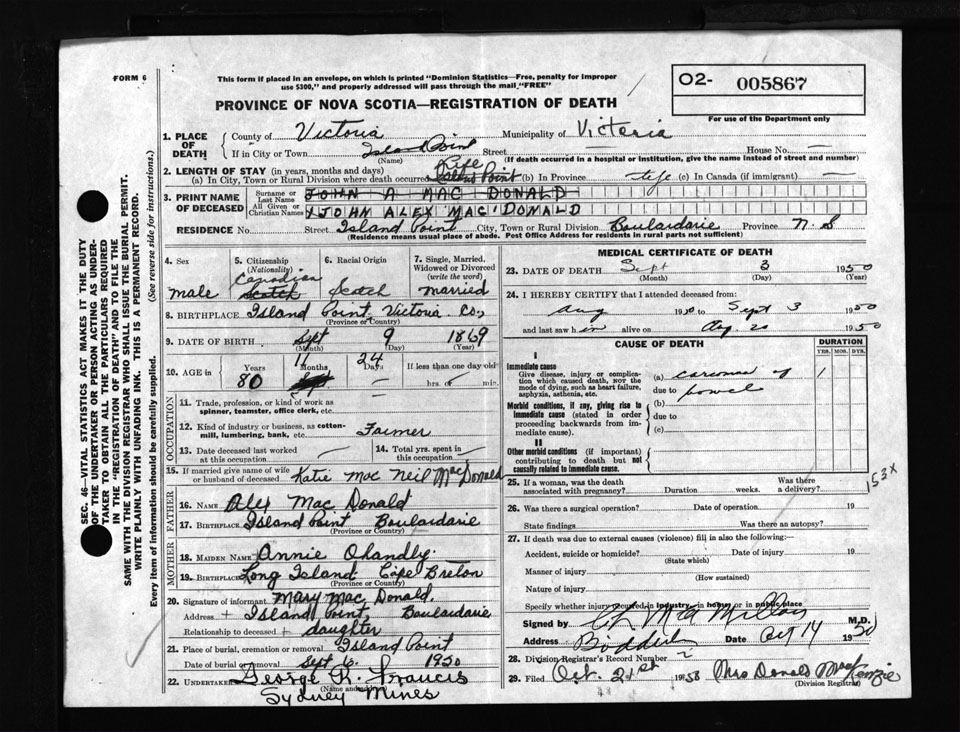 FORM 6
This form if placed in an envelope, on which is printed "Dominion Statistics—Free, penalty for improper
use $300," and properly addressed will pass through the mail "FREE"
O2- 005867
For use of the Department only
PROVINCE OF NOVA SCOTIA—REGISTRATION OF DEATH
1. PLACE OF DEATH
County of Victoria Municipality of Victoria
If in City or Town Island Point Street — House No. —
(Name) (If death occurred in a hospital or institution, give the name instead of street and number)
2. LENGTH OF STAY (in years, months and days) Life
(a) In City, Town or Rural Division where death occurred Island Point (b) In Province life (c) In Canada (if immigrant) —
3. PRINT NAME OF DECEASED
Surname or Last Name JOHN A MAC DONALD
All Given or Christian Names JOHN ALEX MAC DONALD
RESIDENCE No. Street Island Point City, Town or Rural Division Boulardarie Province N. S
(Residence means usual place of abode. Post Office Address for residents in rural parts not sufficient)
4. Sex male
5. Citizenship (Nationality) Canadian Scotch
6. Racial Origin Scotch
7. Single, Married, Widowed or Divorced (write the word) married
8. BIRTHPLACE Island Point Victoria Co,
(Province or Country)
9. DATE OF BIRTH Sept 9 1869
(Month) (Day) (Year)
10. AGE in Years 80 Months 11 Sept Days 24 — If less than one day old hrs. or min.
OCCUPATION
11. Trade, profession, or kind of work as spinner, teamster, office clerk, etc. —
12. Kind of industry or business, as cotton-mill, lumbering, bank, etc. Farmer
13. Date deceased last worked at this occupation —
14. Total yrs. spent in this occupation —
15. If married give name of wife or husband of deceased Katie Mac Neil MacDonald
FATHER
16. NAME Alex Mac Donald
17. BIRTHPLACE Island Point Boulardarie
(Province or Country)
MOTHER
18. MAIDEN NAME Annie Ohandly.
19. BIRTHPLACE Long Island Cape Breton
(Province or Country)
20. Signature of informant Mary Mac Donald.
Address + Island Point, Boulardarie
Relationship to deceased + daughter
21. Place of burial, cremation or removal Island Point
Date of burial or removal Sept 6. 1950
22. UNDERTAKER George R. Francis
(Name and address)
Sydney Mines
MEDICAL CERTIFICATE OF DEATH
23. DATE OF DEATH Sept 3 1950
(Month) (Day) (Year)
24. I HEREBY CERTIFY that I attended deceased from:
Aug 1950 to Sept 3 1950
and last saw him alive on Aug 20 1950
CAUSE OF DEATH
DURATION
YRS. MOS. DYS.
I
Immediate cause
Give disease, injury or complication which caused death, NOT the mode of dying, such as heart failure, asphyxia, asthenia, etc.
(a) carcinoma of 1
due to bowel
Morbid conditions, if any, giving rise to immediate cause (stated in order proceeding backwards from immediate cause).
(b)
due to
(c)
II
Other morbid conditions (if important) contributing to death but not causally related to immediate cause.
153X
25. If a woman, was the death associated with pregnancy? Duration weeks. Was there a delivery?
26. Was there a surgical operation? Date of operation 19
State findings Was there an autopsy?
27. If death was due to external causes (violence) fill in also the following:—
Accident, suicide or homicide? Date of injury 19
(State which)
Manner of injury
(How sustained)
Nature of injury
Specify whether injury occurred in industry, in home, or in public place
Signed by Mac Millan M.D.
Address Baddeck Date Oct 14 1950
28. Division Registrar's Record Number 2
29. Filed Oct. 21st 1958 Mrs Donald MacKenzie
(Division Registrar)
SEC. 46—VITAL STATISTICS ACT MAKES IT THE DUTY
OF THE UNDERTAKER OR PERSON ACTING AS UNDER-
TAKER TO OBTAIN ALL THE PARTICULARS REQUIRED
IN THE "REGISTRATION OF DEATH" AND TO FILE THE
SAME WITH THE DIVISION REGISTRAR WHO SHALL ISSUE THE BURIAL PERMIT.
WRITE PLAINLY WITH UNFADING INK. THIS IS A PERMANENT RECORD.
Every item of information should be carefully supplied. (See reverse side for instructions.)